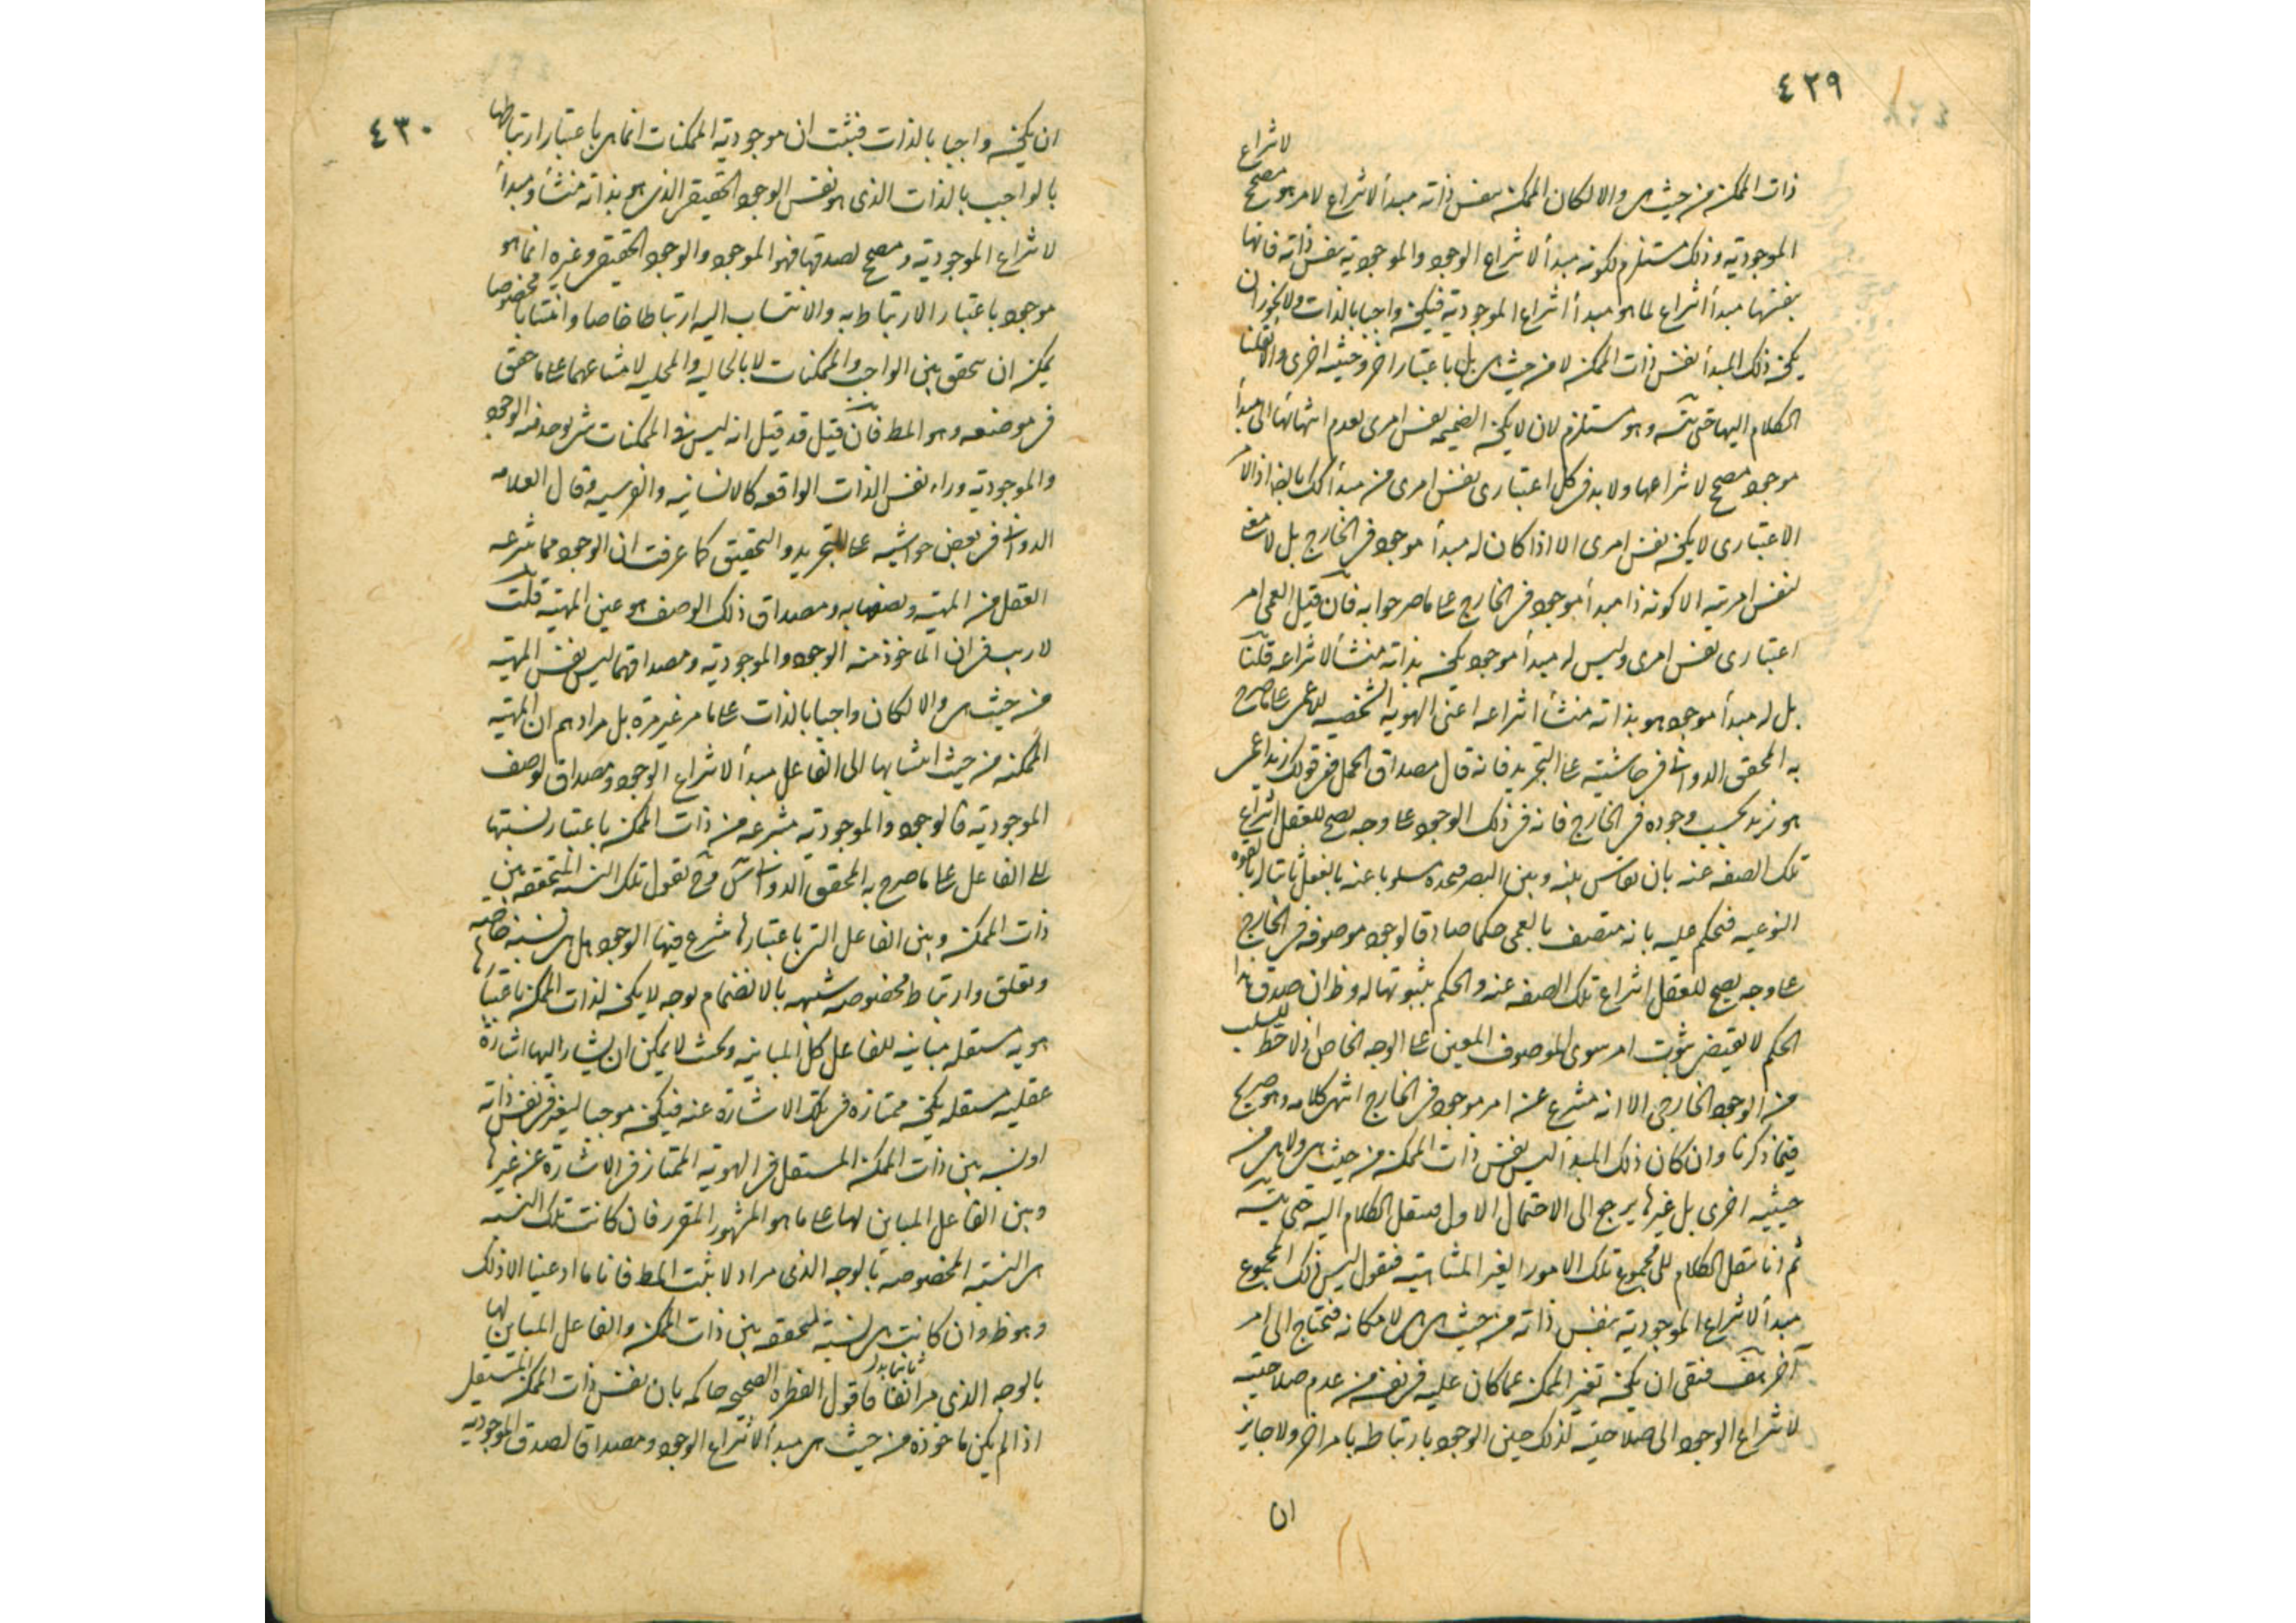 ٤٢٩
لانتزاع
ذات الممكن من حيث هى والا لكان الممكن بنفس ذاته مبدأ لانتزاع لامر هو مصحح
الموجودية وذلك مستلزم لكونه مبدأ لانتزاع الوجود والموجودية بنفس ذاته فانها
بنفسها مبدأ انتزاع لما هو مبدأ انتزاع الموجودية فيكون واجبا بالذات ولا يجوز ان
يكون ذلك المبدأ نفس ذات الممكن لا من حيث هى بل باعتبار اخر وحيثيه اخرى والا نقلنا
الكلام اليها حتى يتسه وهو مستلزم لان لا يكون الضميمه نفس امرى لعدم انتهائها الى مبدأ
موجود مصحح لانتزاعها ولا بد فى كل اعتبارى نفس امرى من مبدأ كك بالضه اذ الامر
الاعتبارى لا يكون نفس امرى الا اذا كان له مبدأ موجود فى الخارج بل لا معنى
لنفس امريته الا كونه ذا مبدأ موجود فى الخارج على ما صرحوا به فان قيل العمى امر
اعتبارى نفس امرى وليس له مبدأ موجود يكون بذاته منشأ لانتزاعه قلنا
بل له مبدأ موجود هو بذاته منشأ انتزاعه اعنى الهوية الشخصيه للاعمى على ما صرح
به المحقق الدوانى فى حاشيته على التجريد فانه قال مصداق الحمل فى قولك زيد اعمى
هو زيد بحسب وجوده فى الخارج فانه فى ذلك الوجود على وجه يصح للعقل انتزاع
تلك الصفه عنه بان يقاس بينه وبين البصر فيجده مسلوبا عنه بالفعل ثابتا له بالقوه
النوعيه فيحكم عليه بانه متصف بالعمى حكما صادقا لوجود موصوفه فى الخارج
على وجه يصح للعقل انتزاع تلك الصفه عنه والحكم بثبوتها له وظ ان صدق هذا
الحكم لا يقتضى ثبوت امر سوى الموصوف المعين على الوجه الخاص اذ لا حظ للسلب
من الوجود الخارجى الا انه منتزع عن امر موجود فى الخارج انتهى كلامه وهو صريح
فيما ذكرنا وان كان ذلك المبدأ ليس نفس ذات الممكن من حيث هى ولا هى من
حيثيه اخرى بل غيرها يرجع الى الاحتمال الاول فينقل الكلام اليه حتى يتسه
ثم انا ننقل الكلام الى مجموع تلك الامور الغير المتناهيه فنقول ليس ذلك المجموع
مبدأ لانتزاع الموجودية بنفس ذاته من حيث هى هى لامكانه فيحتاج الى امر
آخر هف فبقى ان يكون تغير الممكن عما كان عليه فى نفسه من عدم صلاحيته
لانتزاع الوجود الى صلاحيته لذلك حين الوجود بارتباطه بامر اخر ولا جايز
ان
٤٣٠
ان يكون واجبا بالذات فثبت ان موجودية الممكنات انما هى باعتبار ارتباطها
بالواجب بالذات الذى هو نفس الوجود الحقيقى الذى هو بذاته منشأ ومبدأ
لانتزاع الموجودية ومصحح لصدقها فهو الموجود والوجود الحقيقى وغيره انما هو
موجود باعتبار الارتباط به والانتساب اليه ارتباطا خاصا وانتسابا مخصوصا
يمكن ان يتحقق بين الواجب والممكنات لا بالحاليه والمحليه لامتناعهما على ما حقق
فى موضعه وهو المط فان قيل قد قيل انه ليس فى الممكنات شئ يوخذ منه الوجود
والموجودية وراء نفس الذات الواقعه كالانسانيه والفرسيه وقال العلامه
الدوانى فى بعض حواشيه على التجريد والتحقيق كما عرفت ان الوجود مما ينتزعه
العقل من المهيه ويصفها به ومصداق ذلك الوصف هو عين المهيه قلت
لا ريب فى ان الماخوذ منه الوجود والموجودية ومصداقهما ليس نفس المهيه
من حيث هى والا لكان واجبا بالذات على ما مر غير مره بل مرادهم ان المهيه
الممكنه من حيث انتسابها الى الفاعل مبدأ لانتزاع الوجود ومصداق لوصف
الموجودية فالوجود والموجودية منتزعه من ذات الممكن باعتبار نسبتها
الى الفاعل على ما صرح به المحقق الدوانى وح نقول تلك النسبه المتحققه بين
ذات الممكن وبين الفاعل التى باعتبارها ينتزع فيها الوجود هل هى نسبه خاصه
وتعلق وارتباط مخصوصه شبيهه بالانضمام بوجه لا يكون لذات الممكن باعتبارها
هويه مستقله مباينه للفاعل كل المباينه وبحيث لا يمكن ان يشار اليها اشارة
عقليه مستقله يكون ممتازه فى تلك الاشارة عنه فيكون موجبا لتغيره فى نفس ذاته
او نسبه بين ذات الممكن المستقل فى الهوية الممتاز فى الاشارة عن غيرها
وبين الفاعل المباين لها على ما هو المشهور المقرر فان كانت تلك النسبه
هى النسبه المخصوصه بالوجه الذى مر اولا يثبت المط فانا ما ادعينا الا ذلك
وهو ظ وان كانت هى نسبة متحققه بين ذات الممكن والفاعل المباين لها
بالوجه الذى مر ثانيا فاقول الفطره الصحيحه حاكمه بان نفس ذات الممكن المستقل
اذا لم يكن ماخوذه من حيث هى مبدأ لانتزاع الوجود ومصداقا لصدق الموجودية